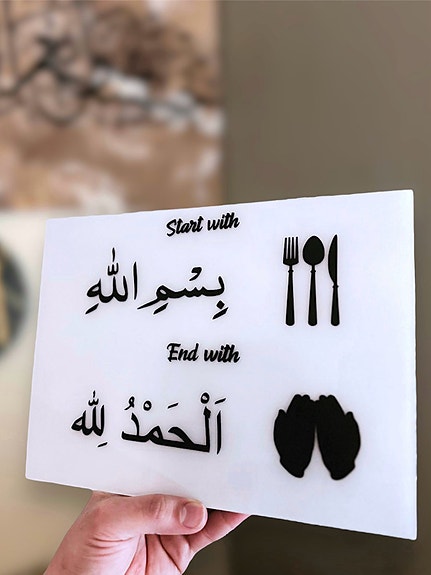 Start with
بِسْمِ اللهِ
End with
اَلْحَمْدُ لِلّٰهِ